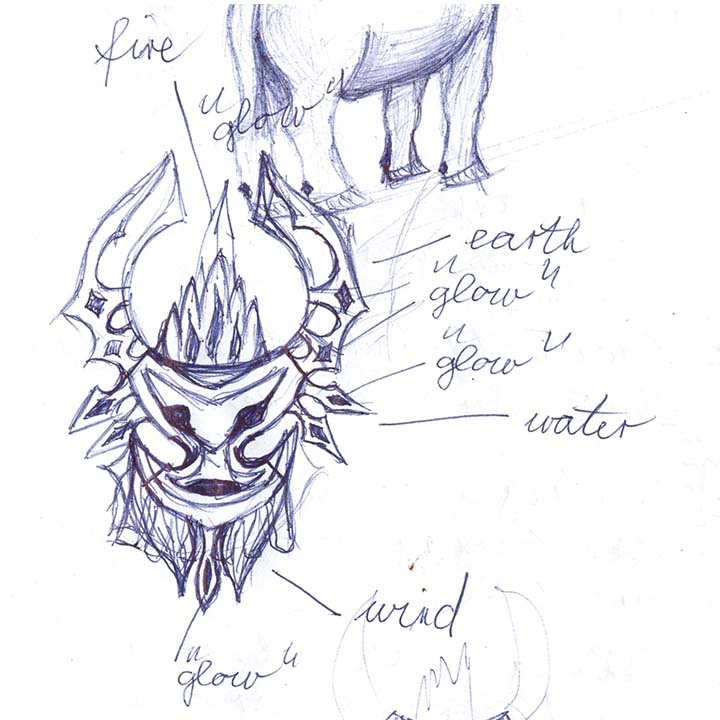 fire
"glow"
earth
"glow"
"glow"
water
wind
"glow"